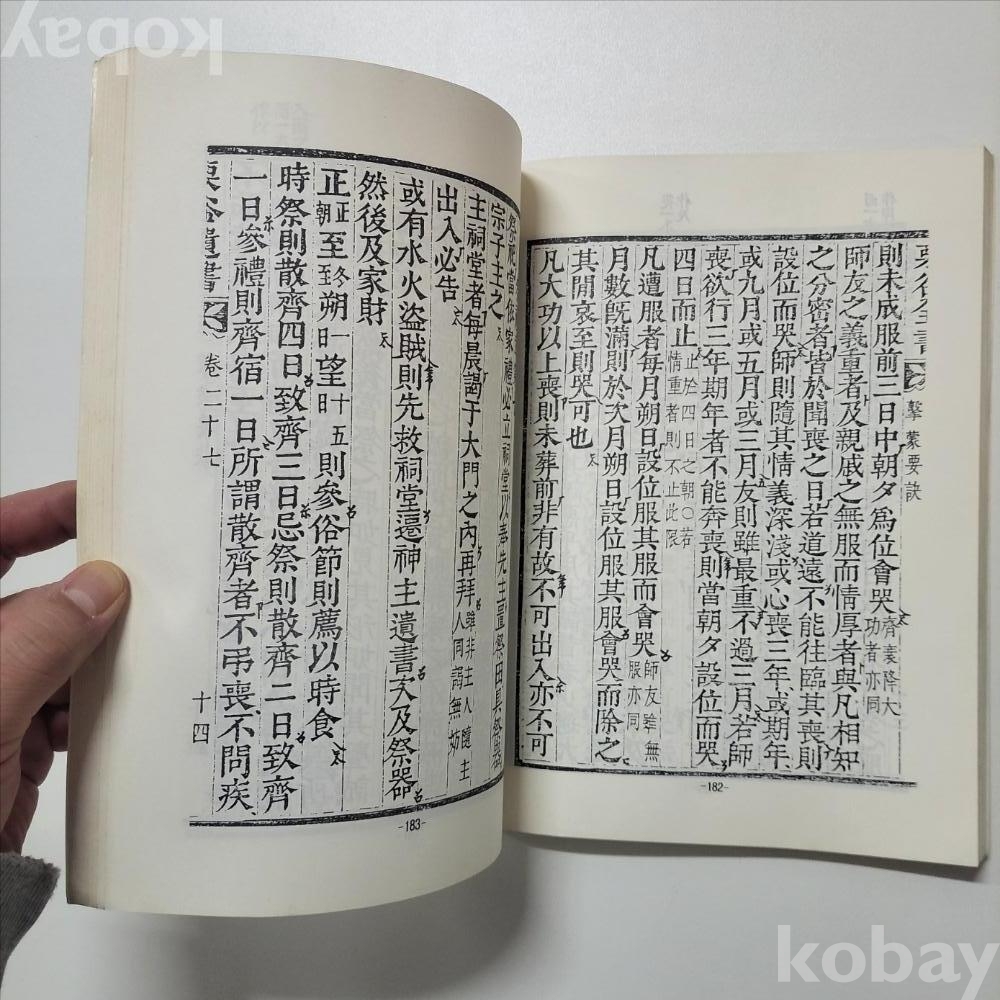 栗谷全書 擊蒙要訣
則未成服前三日中朝夕爲位會哭齊衰降大功者亦同
師友之義重者及親戚之無服而情厚者與凡相知
之分密者皆於聞喪之日若道遠不能往臨其喪則
設位而哭師則隨其情義深淺或心喪三年或期年
或九月或五月或三月友則雖最重不過三月若師
喪欲行三年期年者不能奔喪則當朝夕設位而哭
四日而止止於四日之朝○若情重者則不止此限
凡遭服者每月朔日設位服其服而會哭師友雖無服亦同
月數旣滿則於次月朔日設位服其服會哭而除之
其閒哀至則哭可也
凡大功以上喪則未葬前非有故不可出入亦不可
-182-
祭祀當依家禮必立祠堂以奉先主置祭田具祭器
宗子主之
主祠堂者每晨謁于大門之內再拜雖非主人隨主人同謁無妨
出入必告
或有水火盜賊則先救祠堂遷神主遺書次及祭器
然後及家財
正正朝至冬至朔一日望十五日則參俗節則薦以時食
時祭則散齊四日致齊三日忌祭則散齊二日致齊
一日參禮則齊宿一日所謂散齊者不弔喪不問疾
栗谷遺書 卷二十七 十四
-183-
kobay
kobay